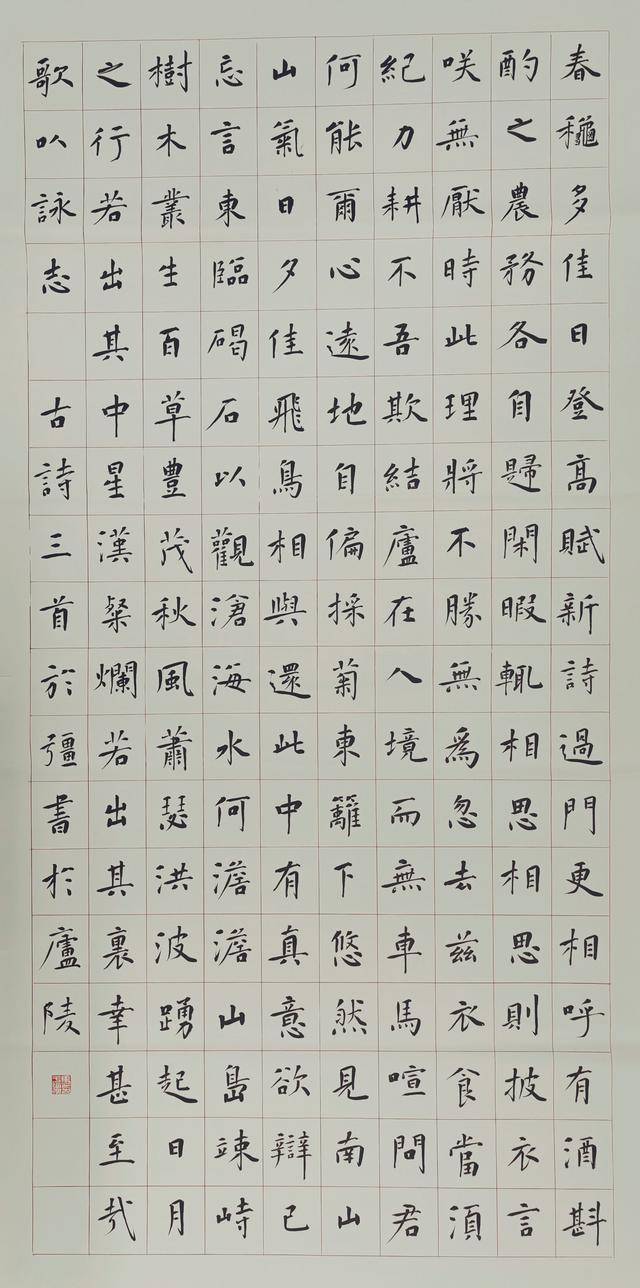 春龝多佳日登高賦新詩過門更相呼有酒斟
酌之農務各自歸閑暇輒相思相思則披衣言
咲無厭時此理將不勝無為忽去茲衣食當須
紀力耕不吾欺結廬在人境而無車馬喧問君
何能爾心遠地自偏採菊東籬下悠然見南山
山氣日夕佳飛鳥相與還此中有真意欲辯已
忘言東臨碣石以觀滄海水何澹澹山島竦峙
樹木叢生百草豊茂秋風蕭瑟洪波踴起日月
之行若出其中星漢粲爛若出其裏幸甚至哉
歌以詠志 古詩三首於彊書於廬陵